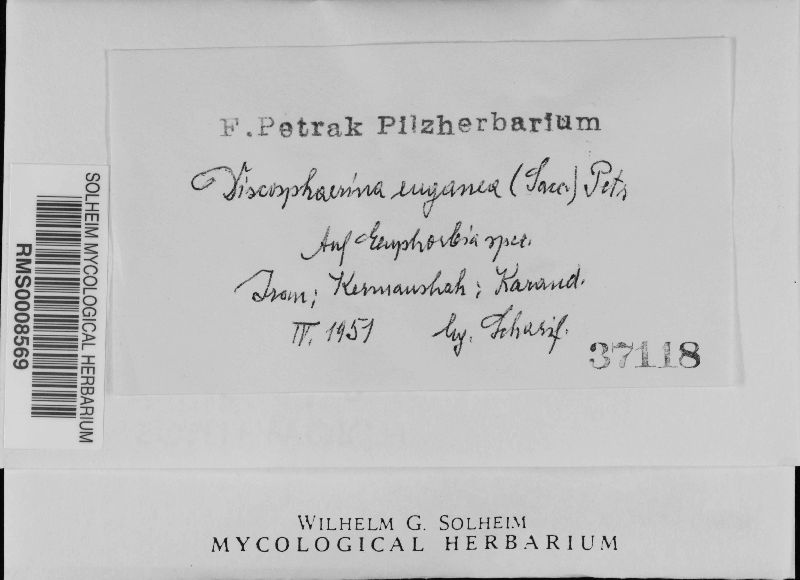 F. Petrak Pilzherbarium
Discosphaerina euganea (Sacc) Petr
Auf Euphorbia spec.
Iran; Kermanshah; Karand.
IV. 1951 leg. Scharif.
37118
SOLHEIM MYCOLOGICAL HERBARIUM
RMS0008569
WILHELM G. SOLHEIM
MYCOLOGICAL HERBARIUM